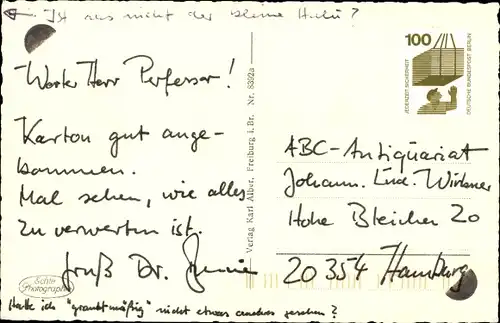 Ist das nicht der kleine ?
Werter Herr Perfessor!
Karton gut ange-
kommen.
Mal sehen, wie alles
zu verwerten ist.
Gruß Dr.
Hatte ich "grautmäßig" nicht etwas anderes gesehen?
Echte
Photographie
Verlag Karl Alber, Freiburg i. Br. Nr. 8392a
100
JEDERZEIT SICHERHEIT
DEUTSCHE BUNDESPOST BERLIN
ABC-Antiquariat
Johann. Lud. Wirbner
Hohe Bleichen 20
20354 Hamburg